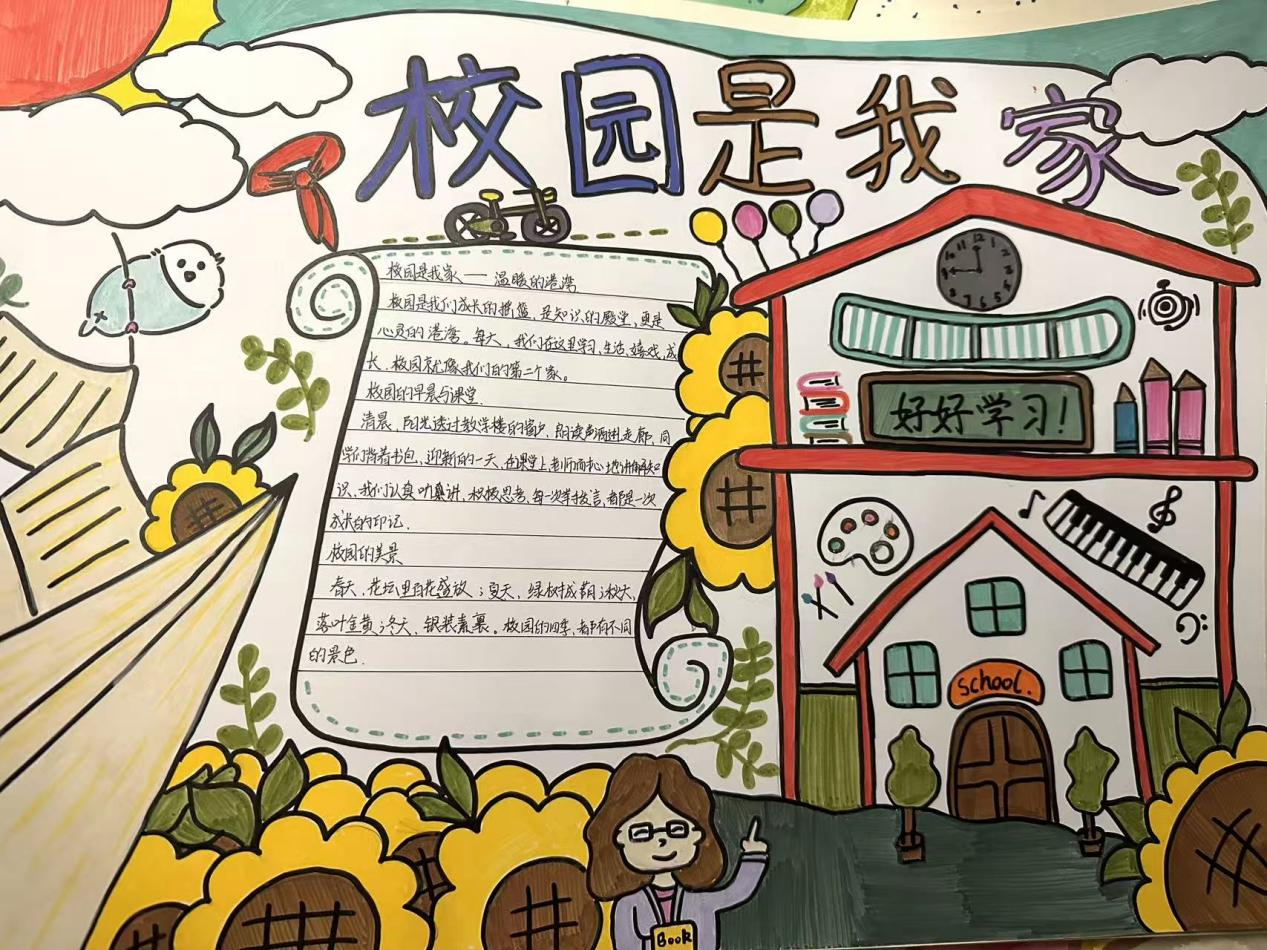 校园是我家
校园是我家——温暖的港湾
校园是我们成长的摇篮、是知识的殿堂、更是
心灵的港湾。每天、我们在这里学习、生活、嬉戏、成
长、校园就像我们的第二个家。
校园的早晨与课堂
清晨、阳光透过教学楼的窗户、朗读声洒进走廊、同
学们背着书包、迎新的一天、在课堂上、老师耐心地讲解知
识、我们认真听讲、积极思考、每一次举手发言、都是一次
成长的印记.
校园的美景
春天、花坛里百花盛放;夏天、绿树成荫;秋天、
落叶金黄;冬天、银装素裹。校园的四季、都有不同
的景色.
好好学习!
12 1 2 3 4 5 6 7 8 9 10 11
school.
Book